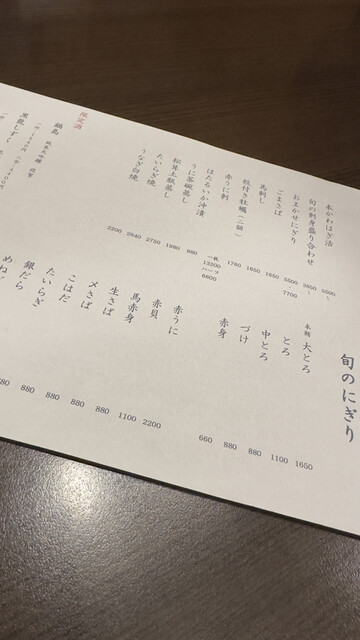 旬のにぎり
本鮪 大とろ 1650
とろ 1100
中とろ 880
づけ 880
赤身 660
赤うに 2200
赤貝 1100
馬赤身 880
生さば 880
〆さば 880
こはだ 880
たいらぎ
銀だら
めねぎ
本かわはぎ活 5500〜
旬の刺身盛り合わせ 3850〜
おまかせにぎり 5500 7700
ごまさば 1650
馬刺し 1650
殻付き牡蠣(二個) 1760
赤うに刺 一枚 13200 ハーフ 6600
ほたるいか沖漬 880
うに茶碗蒸し 1980
松茸土瓶蒸し 2750
たいらぎ焼 2640
うなぎ白焼 2200
限定酒
鍋島
黒龍しずく